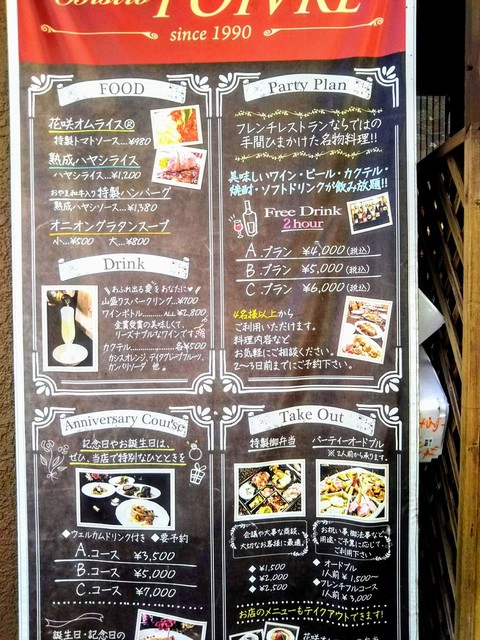 Bistro POIVRE
since 1990
FOOD
花咲オムライス®
特製トマトソース...¥980
熟成ハヤシライス
ハヤシライス...¥1,200
おやま和牛入り特製ハンバーグ
熟成ハヤシソース...¥1,380
オニオングラタンスープ
小...¥500 大...¥800
Drink
あふれ出る愛をあなたに♥
山盛りスパークリング...¥700
ワインボトル.......ALL ¥2,800
金賞受賞の美味しくて、
リーズナブルなワインです。
カクテル..............各¥500
カシスオレンジ、ディタグレープフルーツ、
カンパリソーダ 他。
Party Plan
フレンチレストランならではの
手間ひまかけた名物料理!!
美味しいワイン・ビール・カクテル・
焼酎・ソフトドリンクが飲み放題!!
Free Drink
2 hour
A.プラン ¥4,000(税込)
B.プラン ¥5,000(税込)
C.プラン ¥6,000(税込)
4名様以上から
ご利用いただけます。
料理内容など
お気軽にご相談ください。
2〜3日前までにご予約下さい。
Anniversary Course
記念日やお誕生日は、
ぜひ、当店で特別なひとときを
◆ウェルカムドリンク付き ◆要予約
A.コース ¥3,500
B.コース ¥5,000
C.コース ¥7,000
誕生日・記念日の
Take Out
特製御弁当
会議や大事な商談、
大切なお客様に最適。
◆ ¥1,500
◆ ¥2,000
◆ ¥2,500
パーティーオードブル
※2人前から承ります。
お祝い事、御法事など
用途・ご予算に応じて、
ご利用下さい
◆ オードブル
1人前 ¥1,500〜
◆ フレンチフルコース
1人前 ¥3,000
お店のメニューもテイクアウトできます!
花咲オムライス